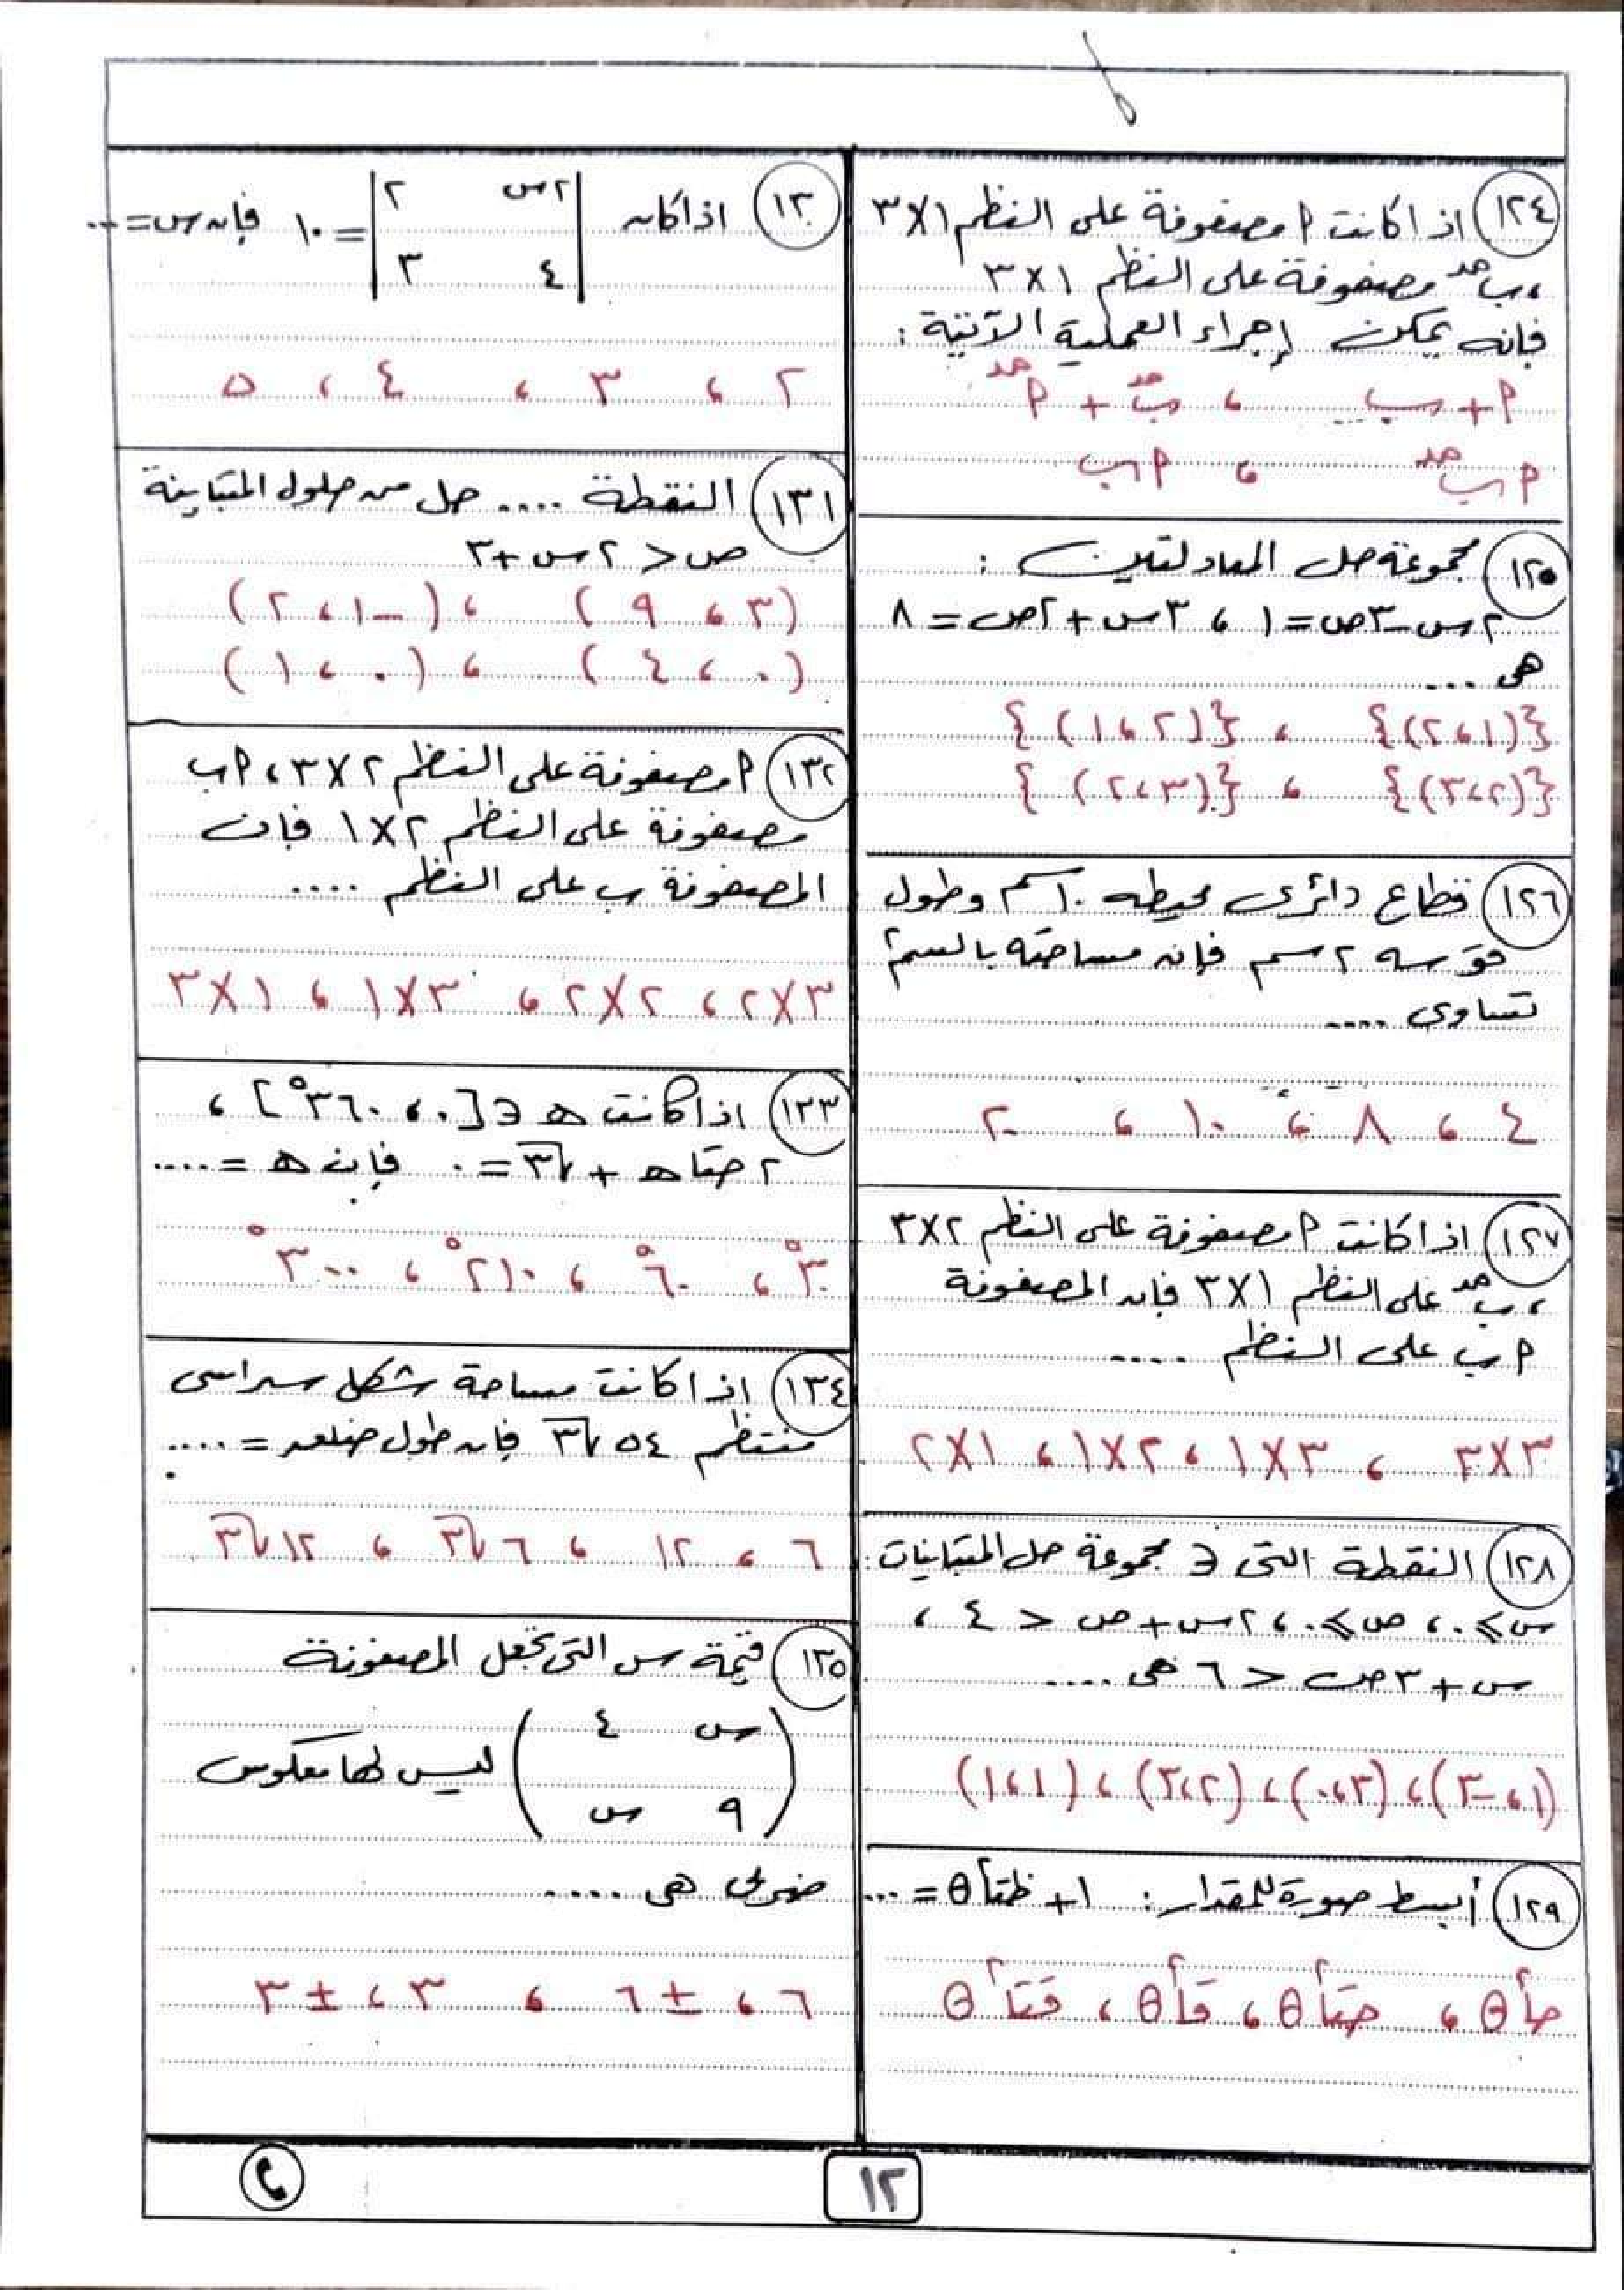 ١٢٤ اذا كانت P مصفوفة على النظم ٣×١
، ب مد مصفوفة على النظم ١×٣
فإنه يمكن إجراء العملية الآتية :
P + ب ، ب مد + P مد
P ب مد ، P ب
١٢٥ مجموعة حل المعادلتين :
٢س - ٣ص = ١ ، ٣س + ٢ص = ٨
هى ...
{(١،٢)} ، {(٢،١)}
{(٢،٣)} ، {(٣،٢)}
١٢٦ قطاع دائرى محيطه ١٠سم وطول
قوسه ٢سم فإن مساحته بالسم٢
تساوى ....
٤ ، ٨ ، ١٠ ، ٢٠
١٢٧ اذا كانت P مصفوفة على النظم ٢×٣
، ب مد على النظم ١×٣ فإن المصفوفة
P ب على النظم ....
٣×٣ ، ٣×١ ، ٢×١ ، ١×٢
١٢٨ النقطة التى ∈ مجموعة حل المتباينات :
س ≥ ٠ ، ص ≥ ٠ ، ٢س + ص < ٤ ،
س + ٣ص < ٦ هى ....
(١،-٣) ، (٣،٠) ، (٢،٣) ، (١،١)
١٢٩ أبسط صورة للمقدار : ١ + ظتا٢ θ = ...
جا٢ θ ، جتا٢ θ ، قا٢ θ ، قتا٢ θ
١٣٠ اذا كان | ٢س ٢ | = ١٠ فإن س = ...
| ٤ ٣ |
٢ ، ٣ ، ٤ ، ٥
١٣١ النقطة .... حل من حلول المتباينة
ص > ٢س + ٣
(٣ ، ٩) ، (-١ ، ٢)
(٠ ، ٤) ، (٠ ، ١)
١٣٢ P مصفوفة على النظم ٢×٣ ، P ب
مصفوفة على النظم ٢×١ فإن
المصفوفة ب على النظم ....
٣×٢ ، ٢×٢ ، ٣×١ ، ١×٣
١٣٣ اذا كانت ھ ∈ ]٠ ، ٣٦٠°[ ،
٢ جتا ھ + √٣ = ٠ فإن ھ = ....
٣٠° ، ٦٠° ، ٢١٠° ، ٣٠٠°
١٣٤ اذا كانت مساحة شكل سداسى
منتظم ٥٤√٣ فإن طول ضلعه = ....
٦ ، ١٢ ، ٦√٣ ، ١٢√٣
١٣٥ قيمة س التى تجعل المصفوفة
( س ٤ )
( ٩ س ) ليس لها معكوس
ضربى هى ....
٦ ، ±٦ ، ٣ ، ±٣
١٢